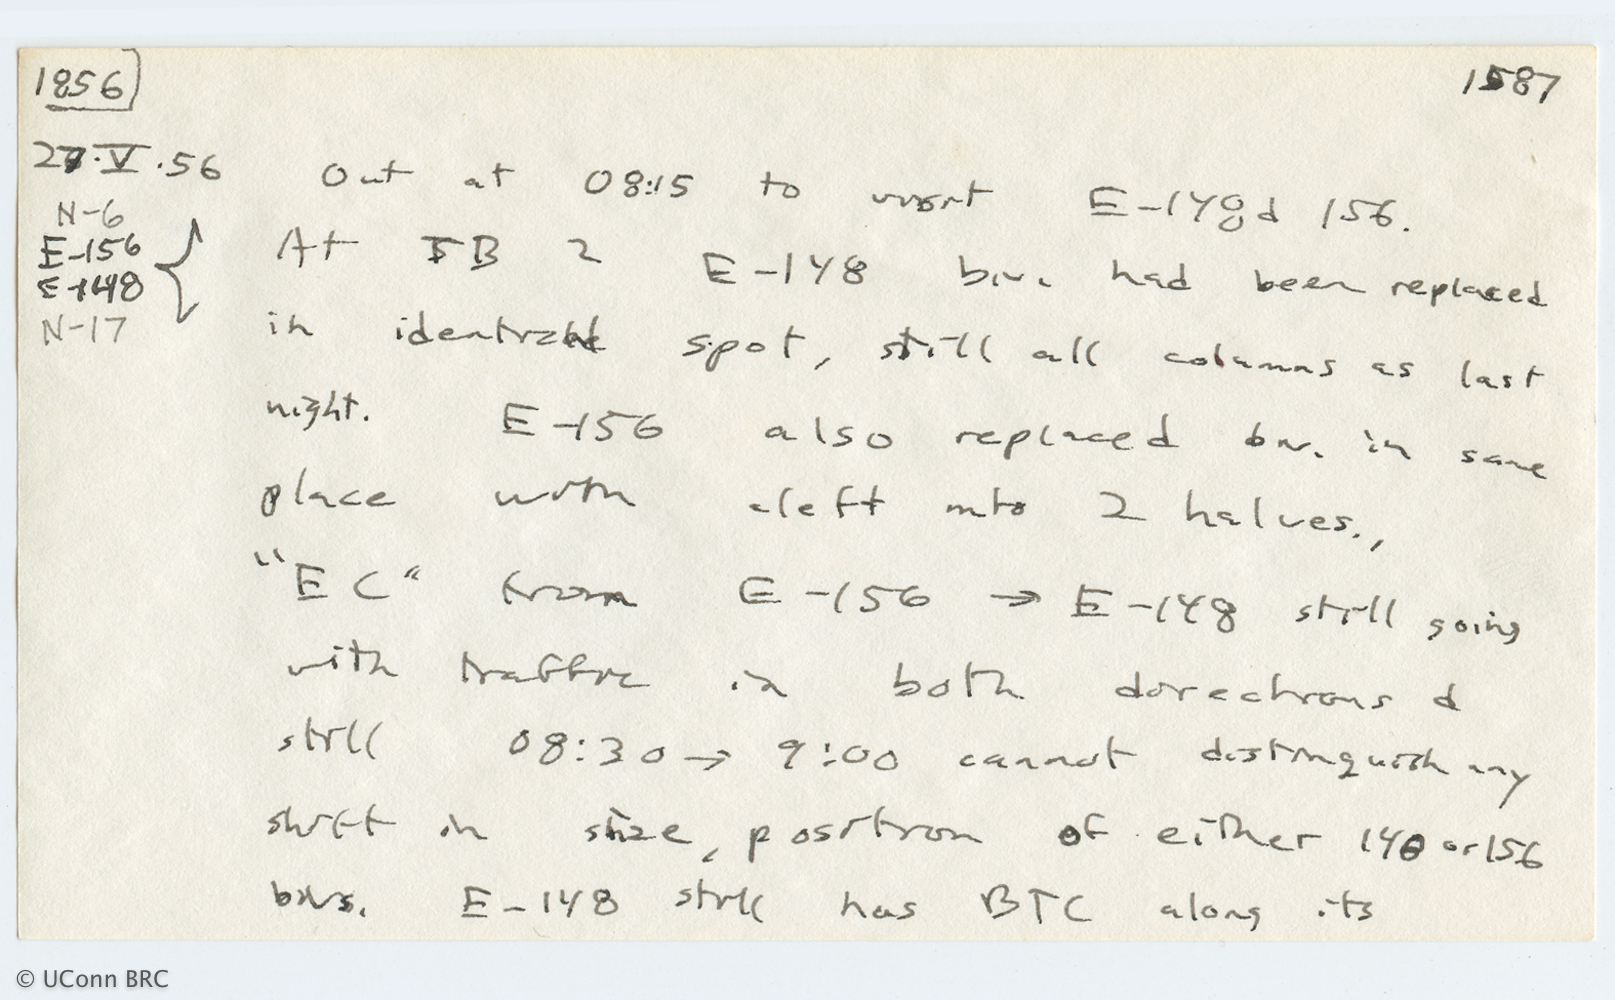 1856
1587
27·V·56
N-6
E-156
E-148
N-17
Out at 08:15 to visit E-148 d 156.
At 5B 2 E-148 biv. had been replaced
in identical spot, still all columns as last
night. E-156 also replaced biv. in same
place with cleft into 2 halves.,
"EC" from E-156 → E-148 still going
with traffic in both directions d
still 08:30 → 9:00 cannot distinguish any
shift in size, position of either 148 or 156
bivs. E-148 still has BTC along its
© UConn BRC